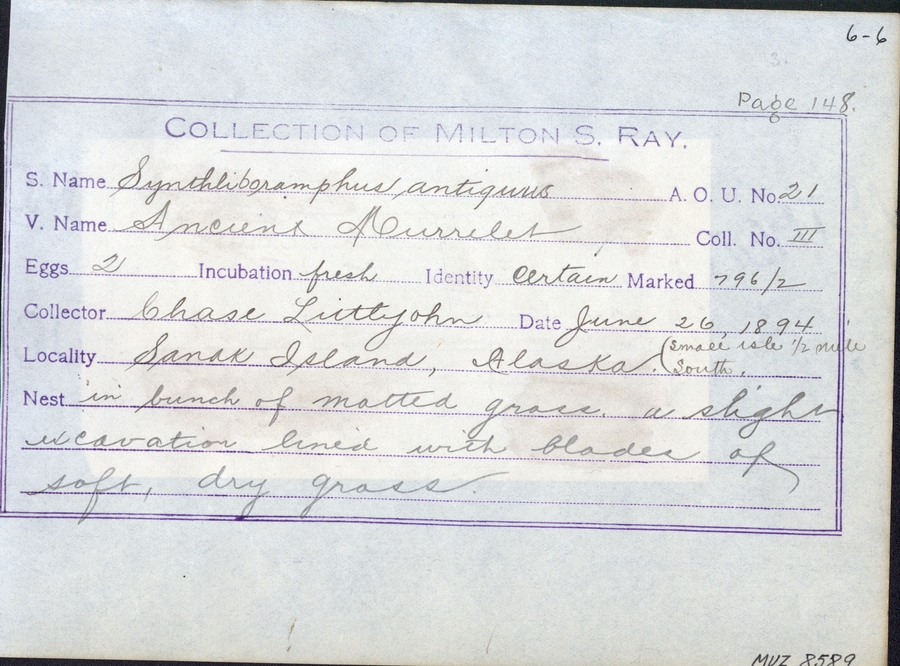 6-6
3.
Page 148.
COLLECTION OF MILTON S. RAY.
S. Name Synthliboramphus antiquus A. O. U. No 21
V. Name Ancient Murrelet Coll. No. III
Eggs 2 Incubation fresh Identity Certain Marked 796/2
Collector Chase Littlejohn Date June 26, 1894
Locality Sanak Island, Alaska. (Small isle 1/2 mile
South.
Nest in bunch of matted grass. a slight
excavation lined with blades of
soft, dry grass.
MVZ 8589